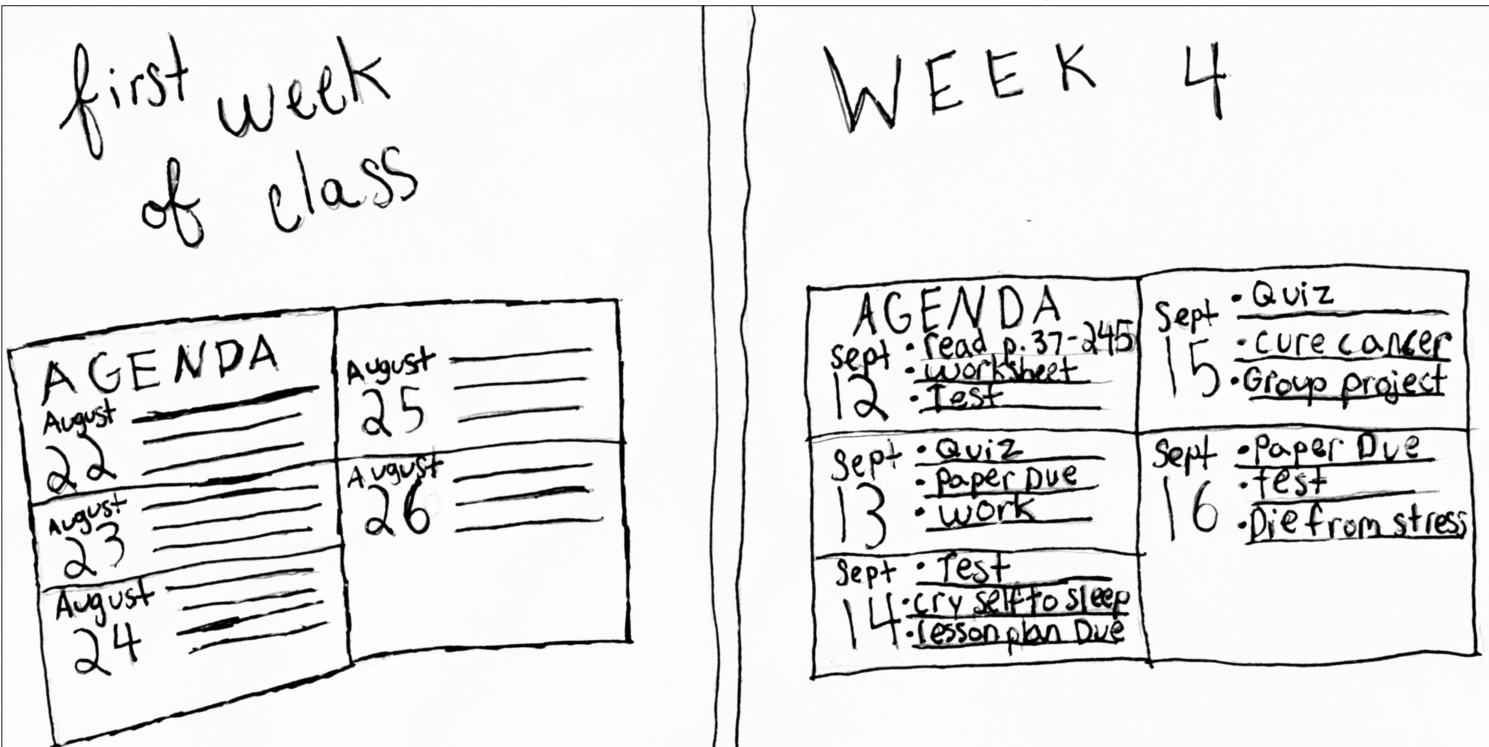 first week
of class
AGENDA
August
22
August
23
August
24
August
25
August
26
WEEK 4
AGENDA
Sept
12
• read p. 37-245
• worksheet
• Test
Sept
13
• Quiz
• Paper Due
• Work
Sept
14
• Test
• cry self to sleep
• lesson plan Due
Sept
15
• Quiz
• cure cancer
• Group project
Sept
16
• Paper Due
• test
• Die from stress